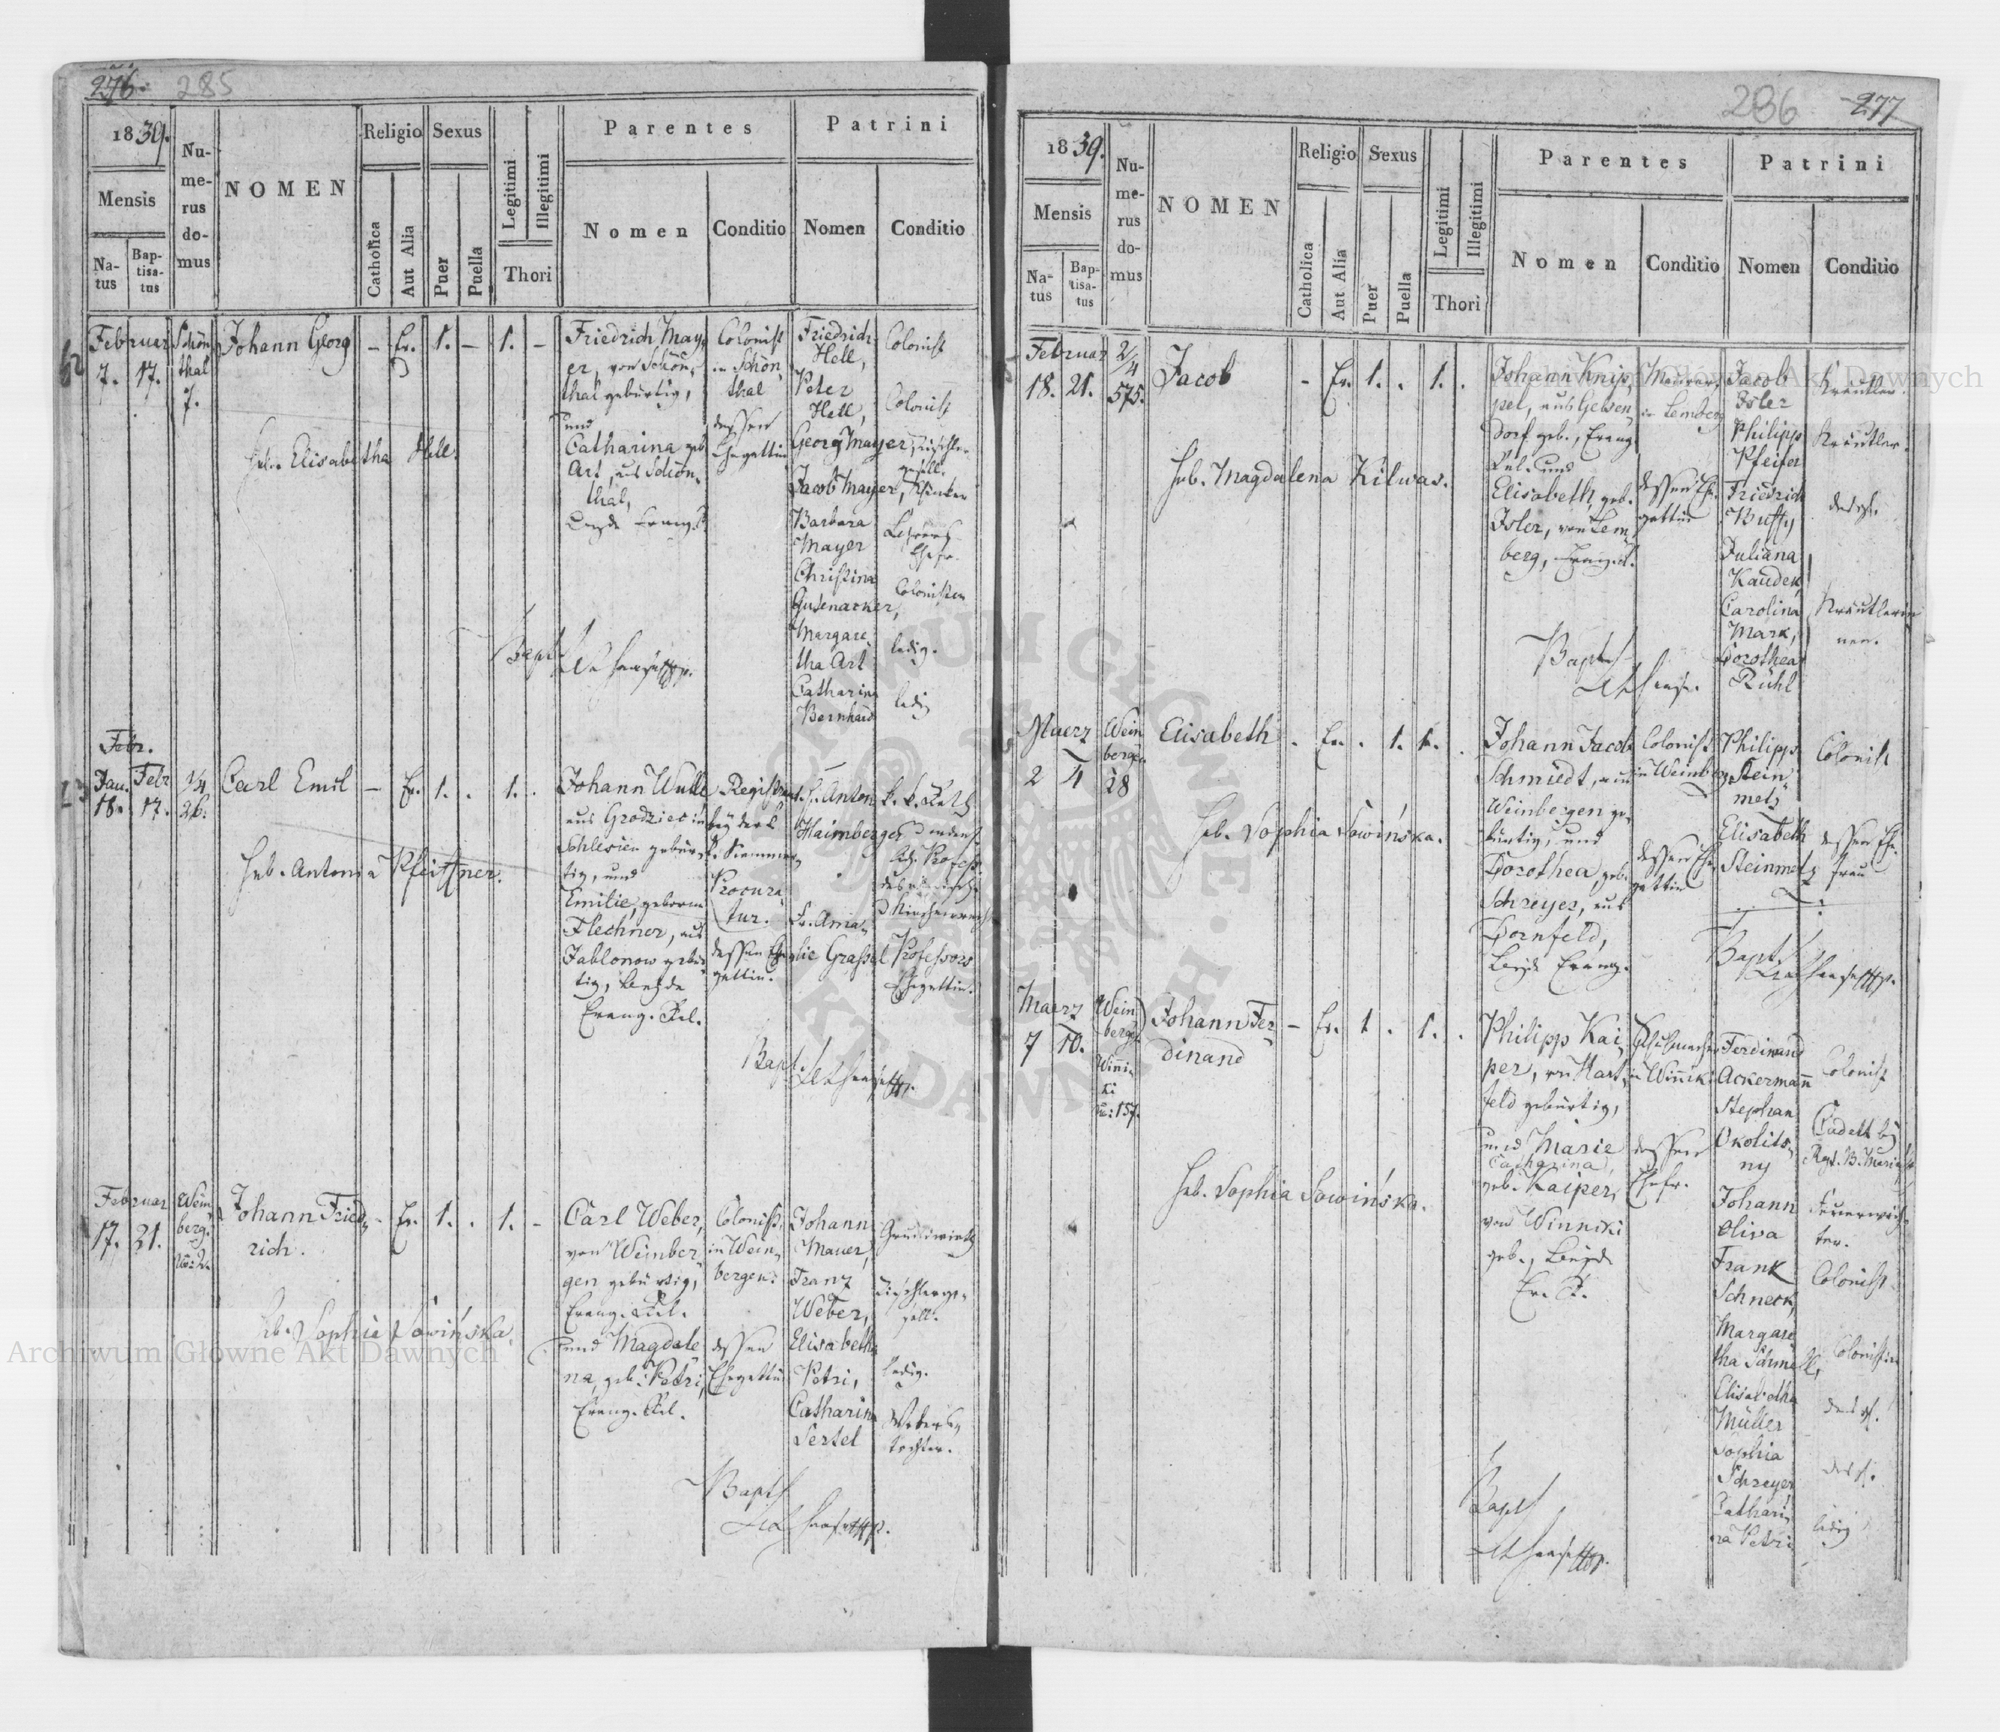 276. 285
1839.
Mensis
Na-
tus
Bap-
tisa-
tus
Nu-
me-
rus
do-
mus
NOMEN
Religio
Catholica
Aut Alia
Sexus
Puer
Puella
Legitimi
Illegitimi
Thori
Parentes
Nomen
Conditio
Patrini
Nomen
Conditio
Februar
7. 17.
Schön
thal
7.
Johann Georg
- Ev. 1. - 1. -
Friedrich May,
er, von Schön,
thal gebürtig,
und
Catharina geb.
Art, aus Schön,
thal,
beyde Evang.
Colonist
in Schön
thal
dessen
Ehegattin
Friedrich
Hell,
Peter
Hell,
Georg Mayer,
Jacob Mayer,
Barbara
Mayer
Christina
Gutenacker,
Margare,
tha Art
Catharina
Bernhard
Colonist
Colonist
ledig.
ledig
Heb. Elisabetha Hell.
Bapt.
Febr.
Jan. Febr
18. 17.
1/4
26.
Carl Emil
- Ev. 1. . 1. .
Johann Wulle
aus Grodziec in
Schlesien gebür,
tig, und
Emilie, geborne
Flechner, aus
Jablonow gebür
tig, beyde
Evang. Rel.
bey der k.
k. Kammer,
Procura
tur.
dessen Ehe,
gattin.
H. Anton
Haimberger
Fr. Ama,
lie Grassel
k. k. Rath
Professors
Ehegattin.
Heb. Antonia Pfeiffner.
Bapt.
Februar
17. 21.
Wein
berg.
Johann Fried,
rich.
- Ev. 1. . 1. -
Carl Weber,
von Weinber
gen gebürtig,
Evang. Rel.
und Magdale
na, geb. Petri,
Evang. Rel.
Colonist
in Wein,
bergen.
dessen
Ehegattin
Johann
Mauer,
Franz
Weber,
Elisabeth
Petri,
Catharina
Sertel
Grundwirth
Tischlerge,
sell.
ledig.
Webers,
tochter.
Heb. Sophia Sowińska.
Bapt.
286 277
1839.
Mensis
Na-
tus
Bap-
tisa-
tus
Nu-
me-
rus
do-
mus
NOMEN
Religio
Catholica
Aut Alia
Sexus
Puer
Puella
Legitimi
Illegitimi
Thori
Parentes
Nomen
Conditio
Patrini
Nomen
Conditio
Februar
18. 21.
2/4
575.
Jacob
- Ev. 1. . 1. .
Johann Knip,
pel, aus Gelsen,
dorf geb., Evang.
Rel. und
Elisabeth, geb.
Isler, von Lem
berg, Evang. R.
Maurer
in Lemberg
dessen Eh.
gattin
Jacob
Isler
Philipp
Pfeifer
Friedrich
Buffy
Juliana
Kaudek,
Carolina
Mark,
Dorothea
Rühl
Kräutler.
Kräutler.
Kräutlerin
nen.
Heb. Magdalena Kilwas.
Bapt.
Maerz
2 4
Wein
bergen
28
Elisabeth
. Ev. . 1. 1. .
Johann Jacob
Schmidt, aus
Weinbergen ge,
bürtig, und
Dorothea, geb.
Schreyer, aus
Dornfeld,
beyde Evang.
Colonist
in Weinberg
dessen Ehe,
gattin
Philipp
Stein
metz
Elisabeth
Steinmetz
Colonist
dessen Eh.
frau
Heb. Sophia Sowińska.
Bapt.
Maerz
7 10.
Wein
bergen
Wini,
ki
No: 157.
Johann Fer,
dinand
- Ev. 1. . 1. .
Philipp Kai,
per, von Hart,
feld gebürtig,
und Marie
Catharina,
geb. Kaiper,
von Winniki
geb., beyde
Ev. R.
Schuhmacher
in Winiki
dessen
Ehefr.
Ferdinand
Ackermann
Stephan
Okolits,
ny
Johann
Oliva
Frank
Schneck,
Margare
tha Schmell,
Elisabetha
Müller
Sophia
Schreyer
Cathari,
na Petri
Colonist
Cadett bei
Feuerwäch,
ter.
Colonist.
Colonistin
ledig
Heb. Sophia Sowińska.
Bapt.
Archiwum Główne Akt Dawnych
Archiwum Główne Akt Dawnych
ARCHIWUM GŁÓWNE AKT DAWNYCH